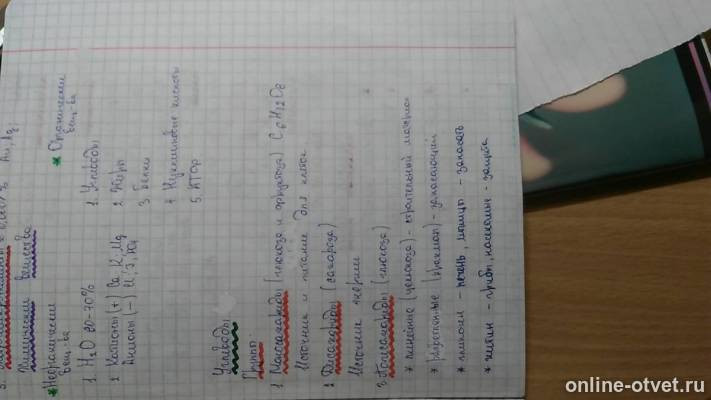 Химические вещества
* Неорганические вещ-ва
* Органические вещ-ва
1. H2O 20-70%
2 Катионы (+)
Анионы (-)
1. Углеводы
2 Жиры
3 Белки
4 Нуклеиновые кислоты
5. АТФ
Углеводы
Группы
1 Моносахариды (глюкоза и фруктоза) C6H12O6
Источники и питание для клеток
2 Дисахариды (сахароза)
Источники энергии
3 Полисахариды (глюкоза)
* линейные (целлюлоза) - строительный материал
* разветвленные (крахмал) - запасающий
* гликоген - печень, мышцы - запасать
* хитин - грибы, насекомые - защита
online-otvet.ru